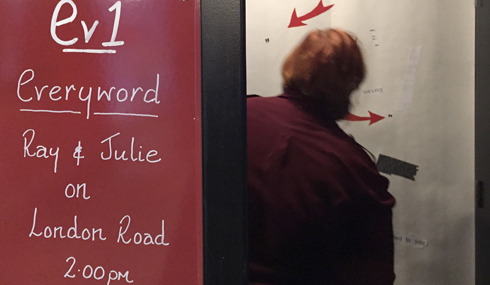 ev1
everyword
Ray & Julie
on
London Road
2.00pm